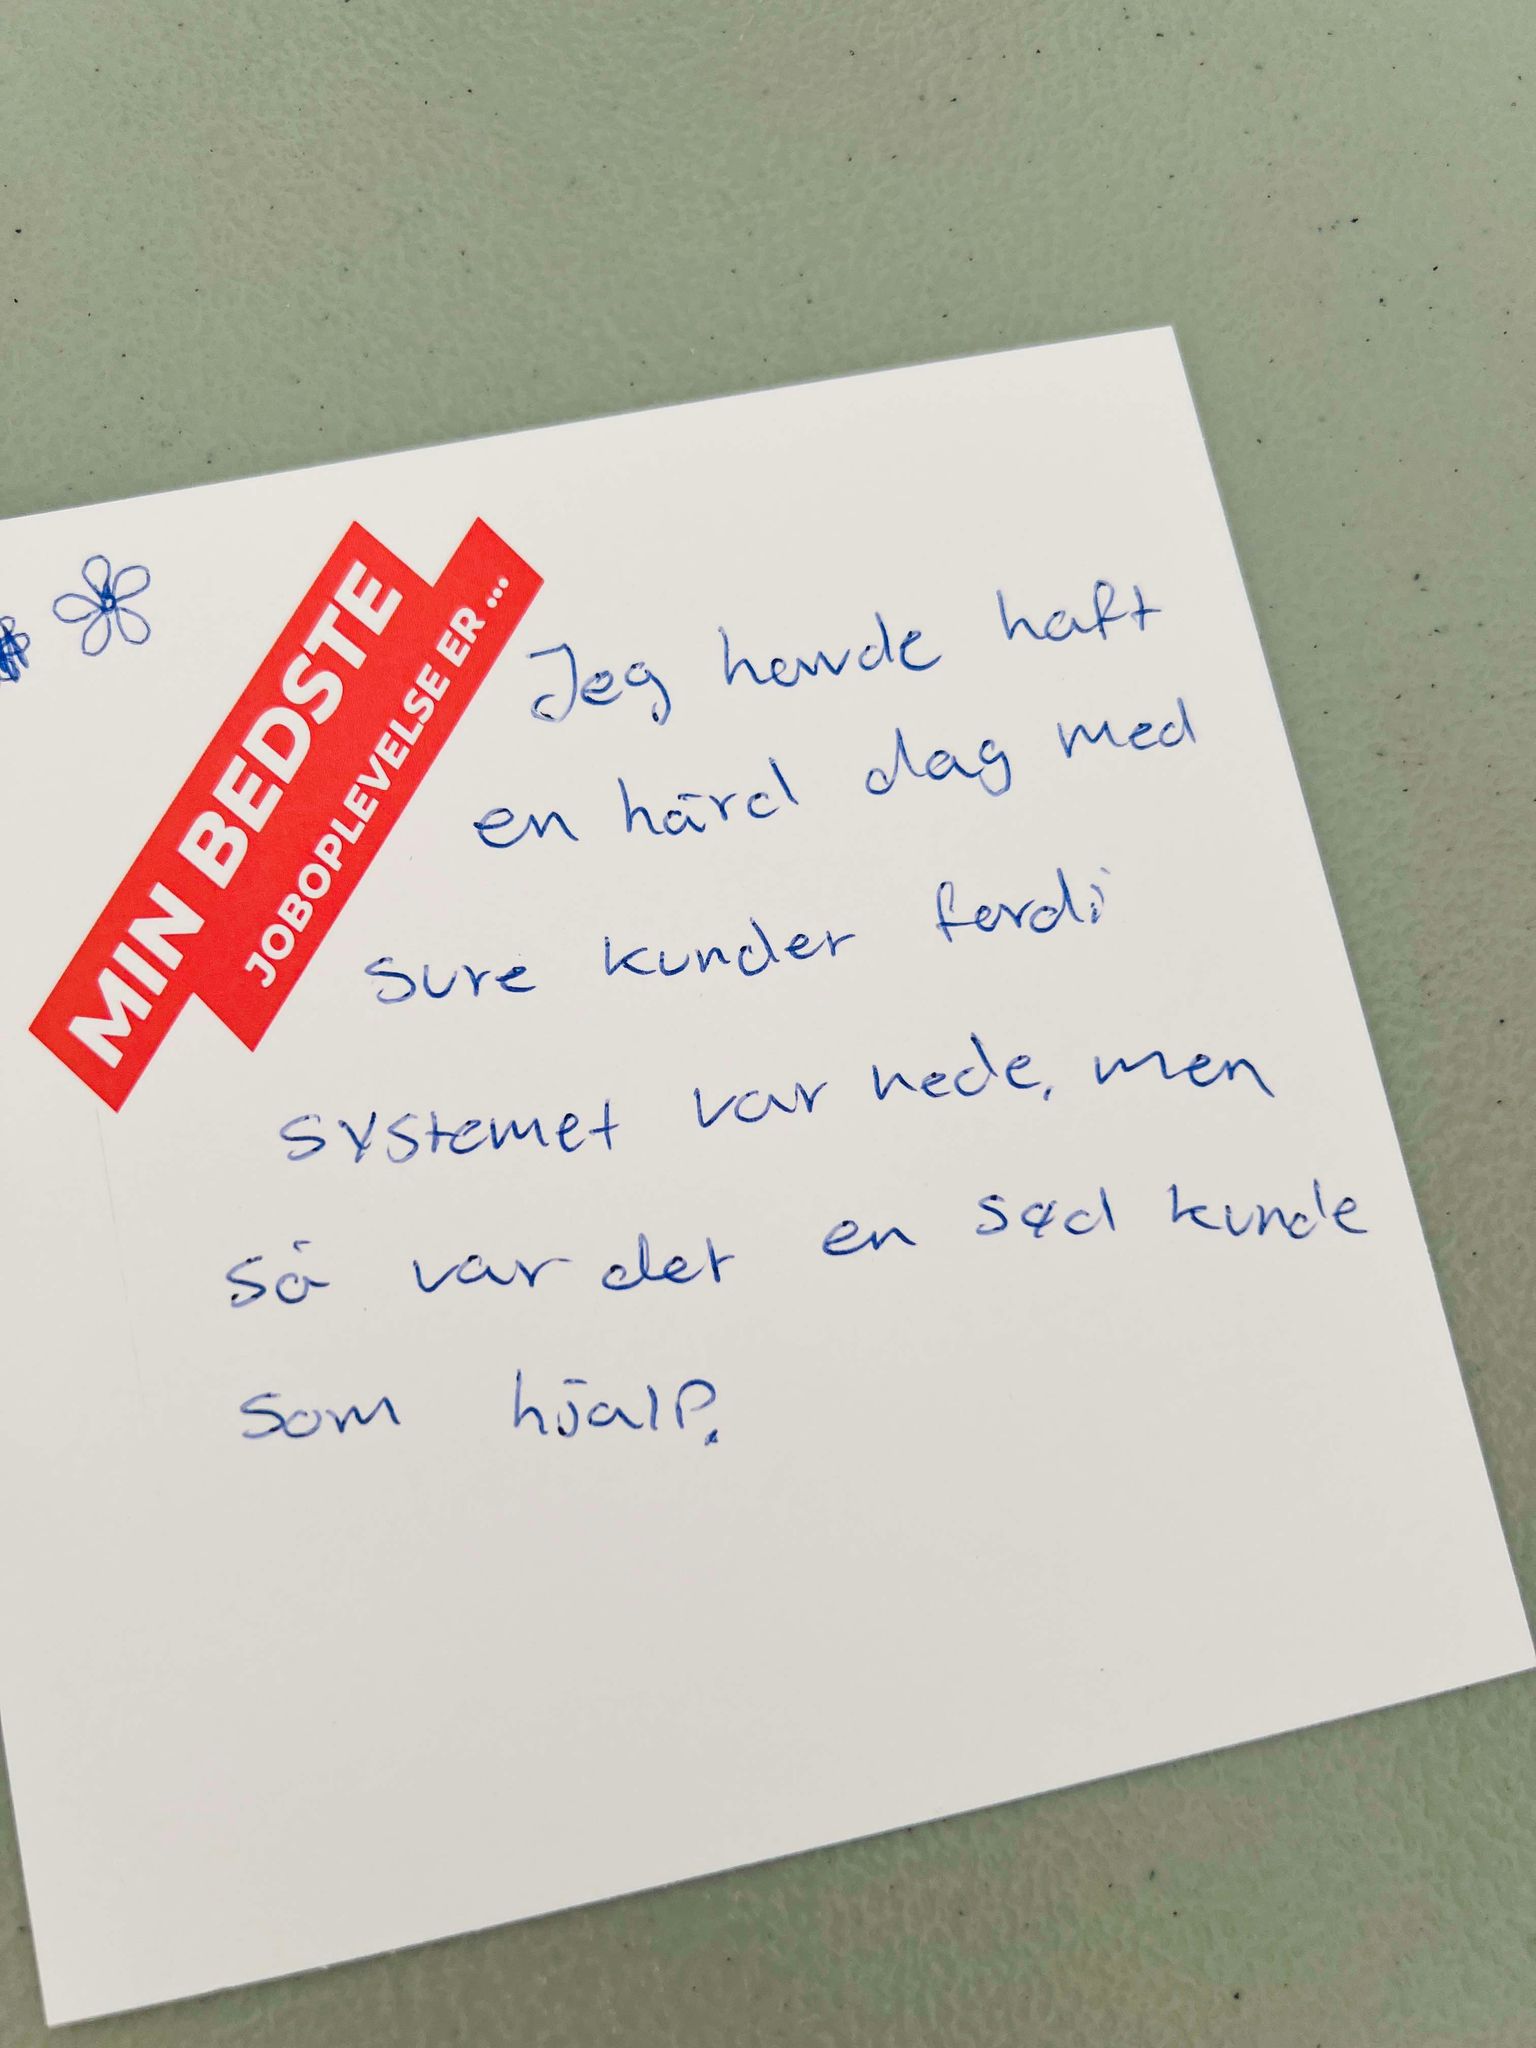 MIN BEDSTE
JOBOPLEVELSE ER...
Jeg havde haft
en hård dag med
sure kunder fordi
systemet var nede, men
så var det en sød kunde
som hjalp.